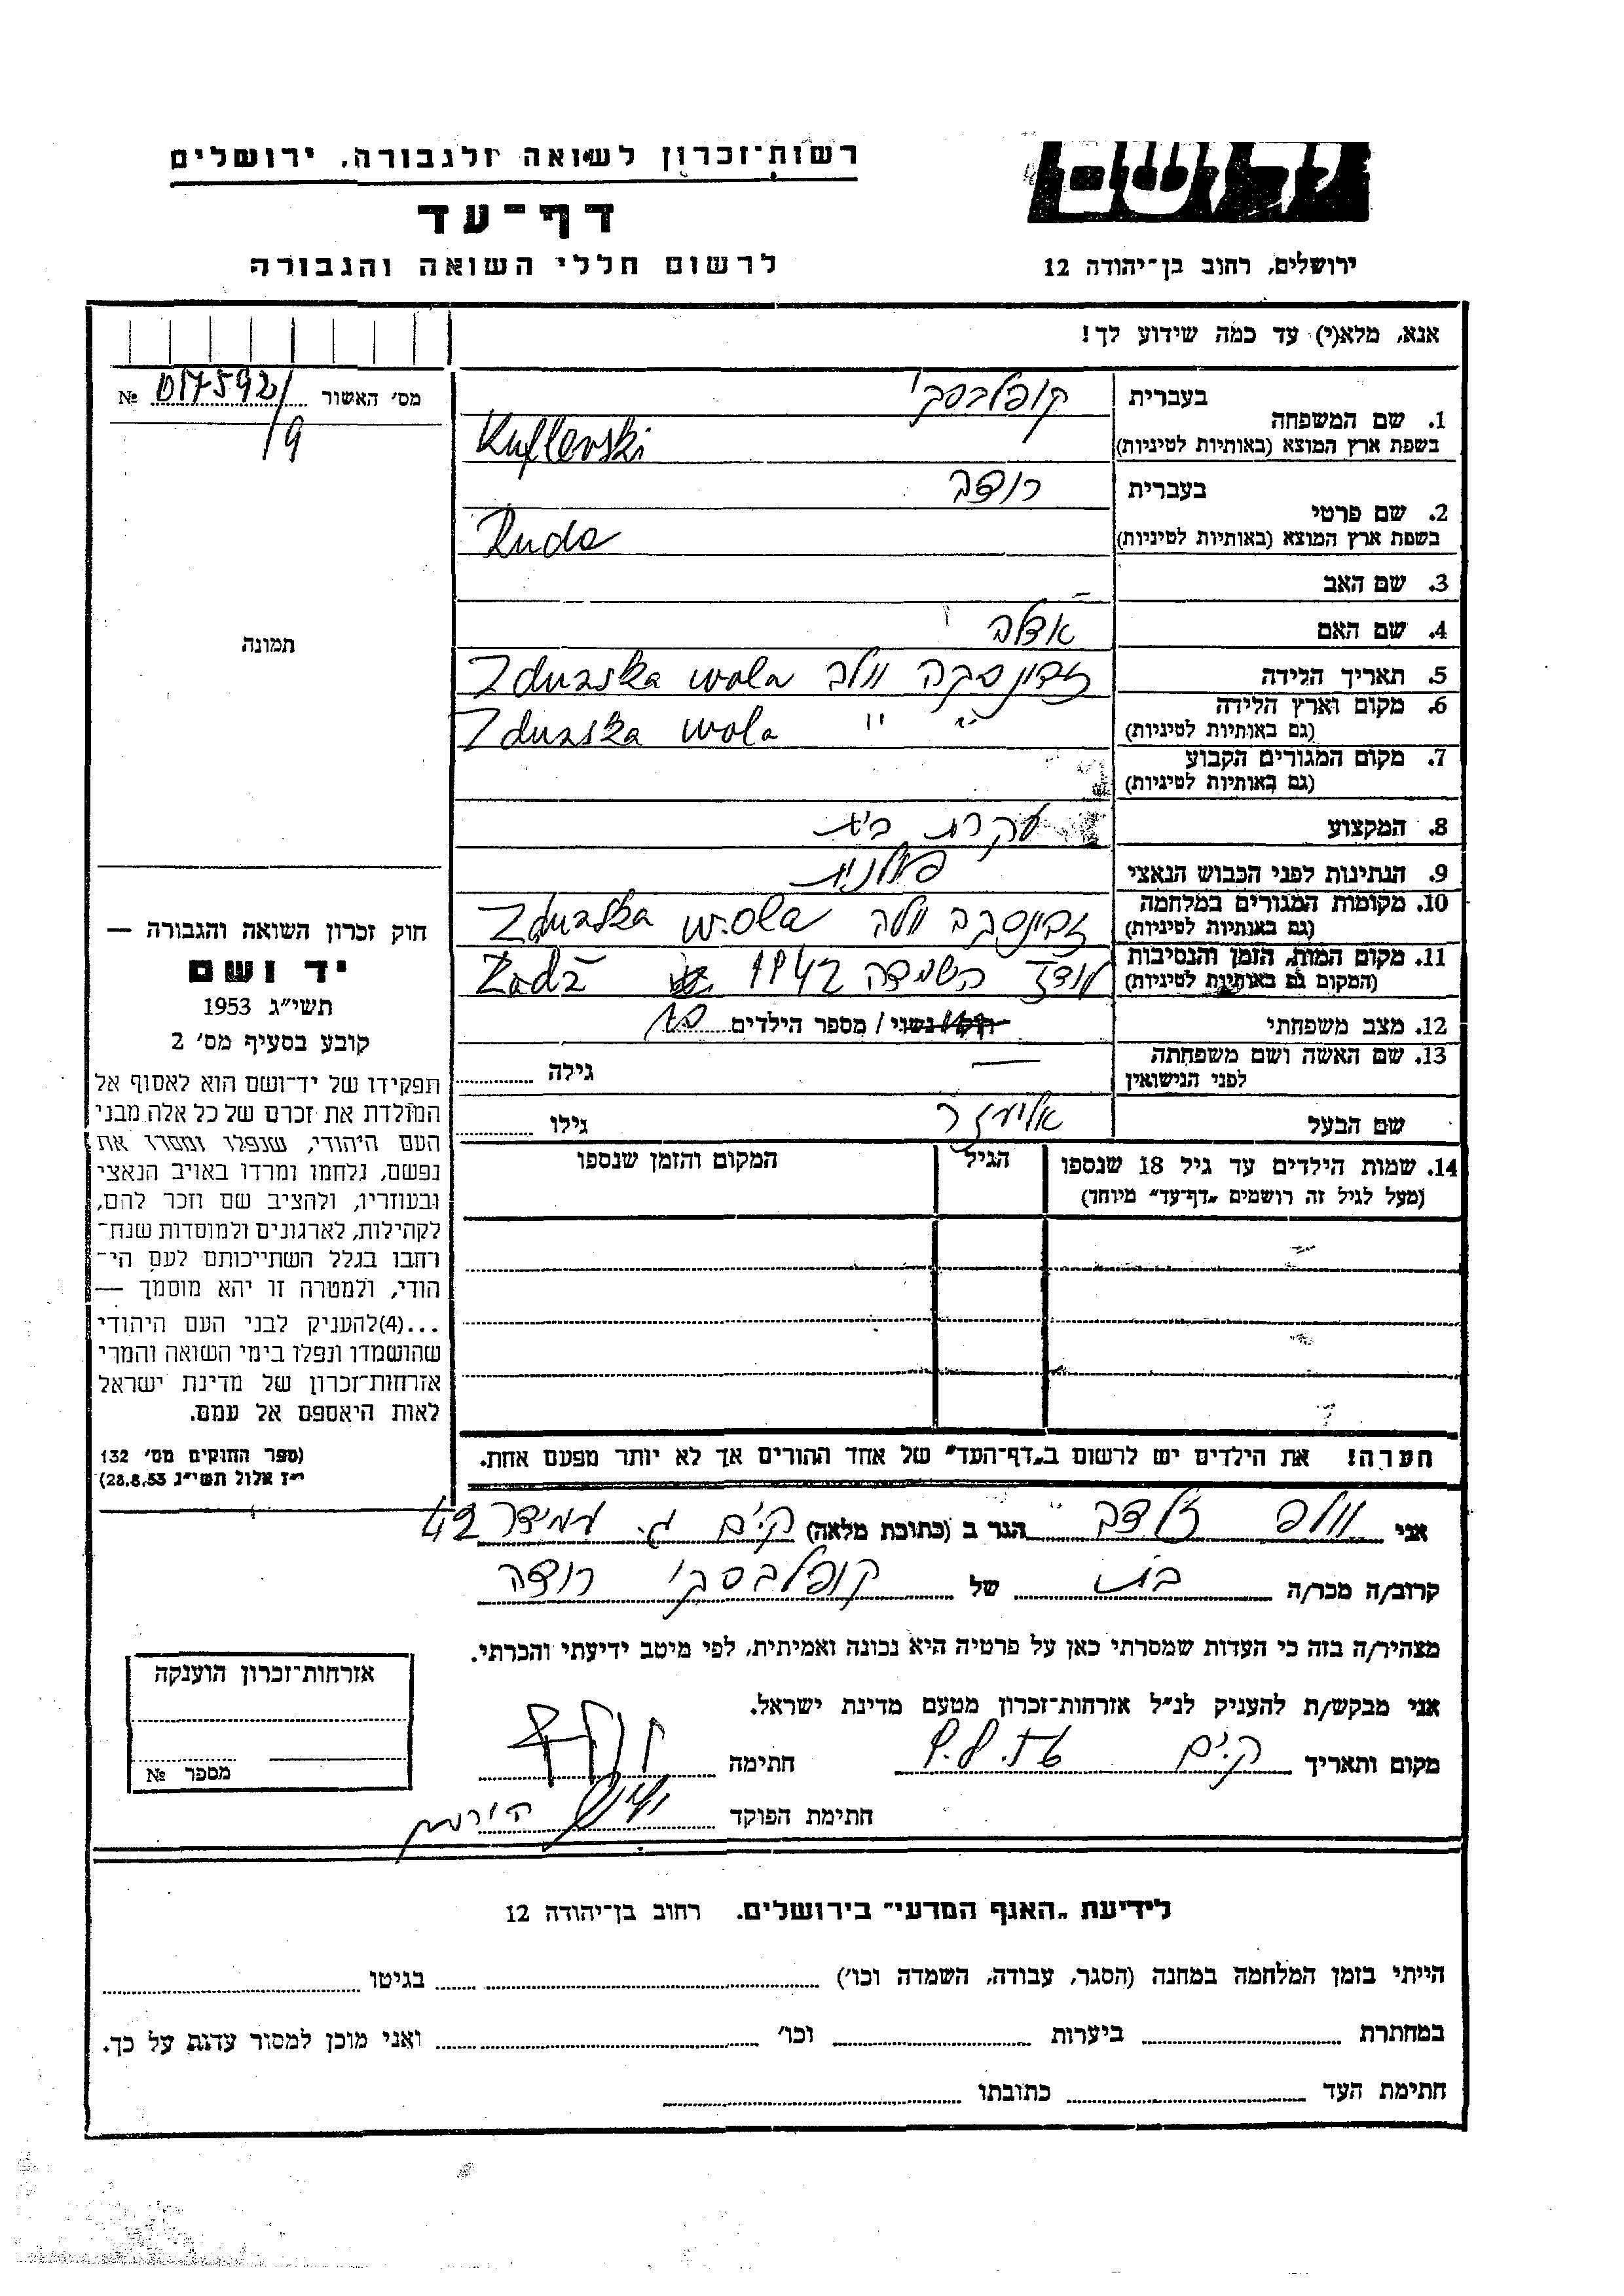 רשות־זכרון לשואה ולגבורה, ירושלים
דף־עד
לרשום חללי השואה והגבורה
ירושלים, רחוב בן־יהודה 12
אנא, מלא(י) עד כמה שידוע לך!
מס' האשור № 017592/
/9
תמונה
בעברית קופלבסקי
1. שם המשפחה
בשפת ארץ המוצא (באותיות לטיניות) Kuflevski
בעברית רודה
2. שם פרטי
בשפת ארץ המוצא (באותיות לטיניות) Ruda
3. שם האב –
4. שם האם אדלה
5. תאריך הלידה זדונסקה וולה Zdunska wola
6. מקום וארץ הלידה
(גם באותיות לטיניות) " " Zdunska wola
7. מקום המגורים הקבוע
(גם באותיות לטיניות)
8. המקצוע עקרת בית
9. הנתינות לפני הכבוש הנאצי פולנית
10. מקומות המגורים במלחמה
(גם באותיות לטיניות) זדונסקה וולה Zdunska wola
11. מקום המות, הזמן והנסיבות
(המקום גם באותיות לטיניות) לודז השמדה 1942 Zadz
12. מצב משפחתי רוק/נשוי / מספר הילדים
13. שם האשה ושם משפחתה
לפני הנישואין — גילה
שם הבעל אליעזר גילו
14. שמות הילדים עד גיל 18 שנספו הגיל המקום והזמן שנספו
(מעל לגיל זה רושמים „דף־עד" מיוחד)
הערה! את הילדים יש לרשום ב„דף־העד" של אחד ההורים אך לא יותר מפעם אחת.
חוק זכרון השואה והגבורה —
יד ושם
תשי"ג 1953
קובע בסעיף מס' 2
תפקידו של יד־ושם הוא לאסוף אל
המולדת את זכרם של כל אלה מבני
העם היהודי, שנפלו ומסרו את
נפשם, נלחמו ומרדו באויב הנאצי
ובעוזריו, ולהציב שם וזכר להם,
לקהילות, לארגונים ולמוסדות שנח־
רבו בגלל השתייכותם לעם הי־
הודי, ולמטרה זו יהא מוסמך —
...(4)להעניק לבני העם היהודי
שהושמדו ונפלו בימי השואה והמרי
אזרחות־זכרון של מדינת ישראל
לאות היאספם אל עמם.
(ספר החוקים מס' 132
י"ז אלול תשי"ג 28.8.53)
אני וולף זלדה הגר ב (כתובת מלאה) ק.ים ג. עמידר 42
קרוב/ה מכר/ה בת של קופלבסקי רודה
מצהיר/ה בזה כי העדות שמסרתי כאן על פרטיה היא נכונה ואמיתית, לפי מיטב ידיעתי והכרתי.
אני מבקש/ת להעניק לנ"ל אזרחות־זכרון מטעם מדינת ישראל.
מקום ותאריך ק.ים חתימה
חתימת הפוקד
אזרחות־זכרון הוענקה
מספר №
לידיעת „האגף המדעי" בירושלים. רחוב בן־יהודה 12
הייתי בזמן המלחמה במחנה (הסגר, עבודה, השמדה וכו') בגיטו
במחתרת ביערות וכו' ואני מוכן למסור עדות על כך.
חתימת העד כתובתו